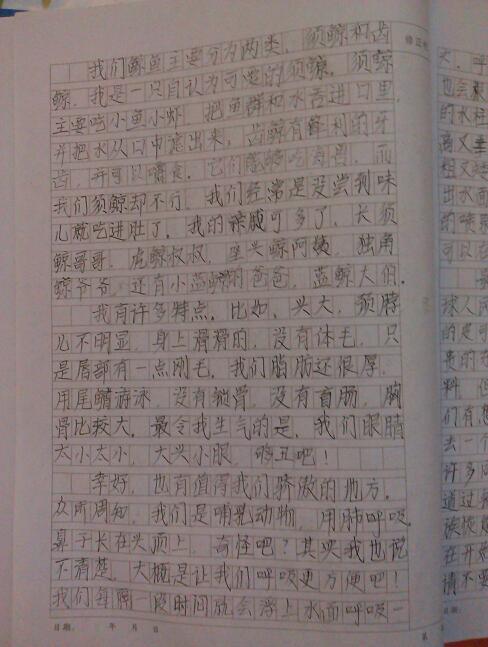 修正
我们鲸鱼主要分为两类,须鲸和齿
鲸。我是一只自认为可爱的须鲸。须鲸
主要吃小鱼小虾,把鱼群和水吞进口里,
并把水从口中滤出来,齿鲸有锋利的牙
齿,并可以嚼食,它们能够吃海兽。而
我们须鲸却不行,我们经常是没尝到味
儿就吃进肚了。我的亲戚可多了,长须
鲸哥哥,虎鲸叔叔,座头鲸阿姨,独角
鲸爷爷,还有小蓝鲸的爸爸,蓝鲸大伯。
我有许多特点。比如,头大,颈脖
儿不明显,身上滑滑的,没有体毛,只
是唇部有一点刚毛。我们脂肪还很厚,
用尾鳍游泳,没有锁骨,没有盲肠,胸
骨比较大。最令我生气的是,我们眼睛
太小太小,大头小眼,够丑吧!
幸好,也有值得我们骄傲的地方。
众所周知,我们是哺乳动物,用肺呼吸。
鼻子长在头顶上,奇怪吧?其实我也说
不清楚,大概是让我们呼吸更方便吧!
我们每隔一段时间就会浮上水面呼吸一
日期: 年 月 日 第
也会
的水柱
出水面
的喷
可以
球人
的是可
贵的
料,但
们有
去一个
许多
通过
在开
请不要
日期: